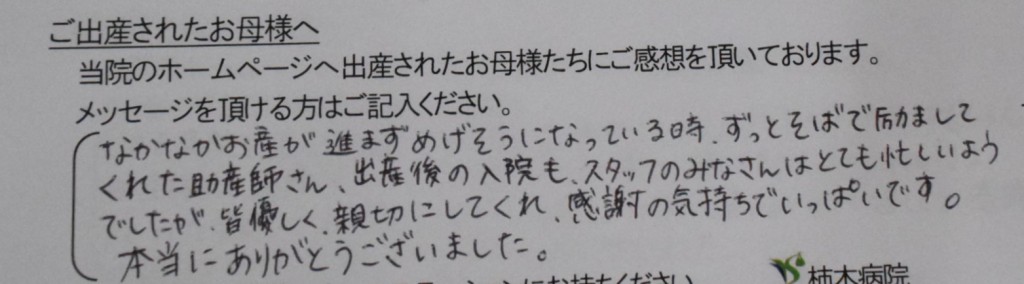 ご出産されたお母様へ
当院のホームページへ出産されたお母様たちにご感想を頂いております。
メッセージを頂ける方はご記入ください。
なかなかお産が進まずめげそうになっている時、ずっとそばで励まして
くれた助産師さん、出産後の入院も、スタッフのみなさんはとても忙しいよう
でしたが、皆優しく、親切にしてくれ、感謝の気持ちでいっぱいです。
本当にありがとうございました。
にお持ちください
柿木病院